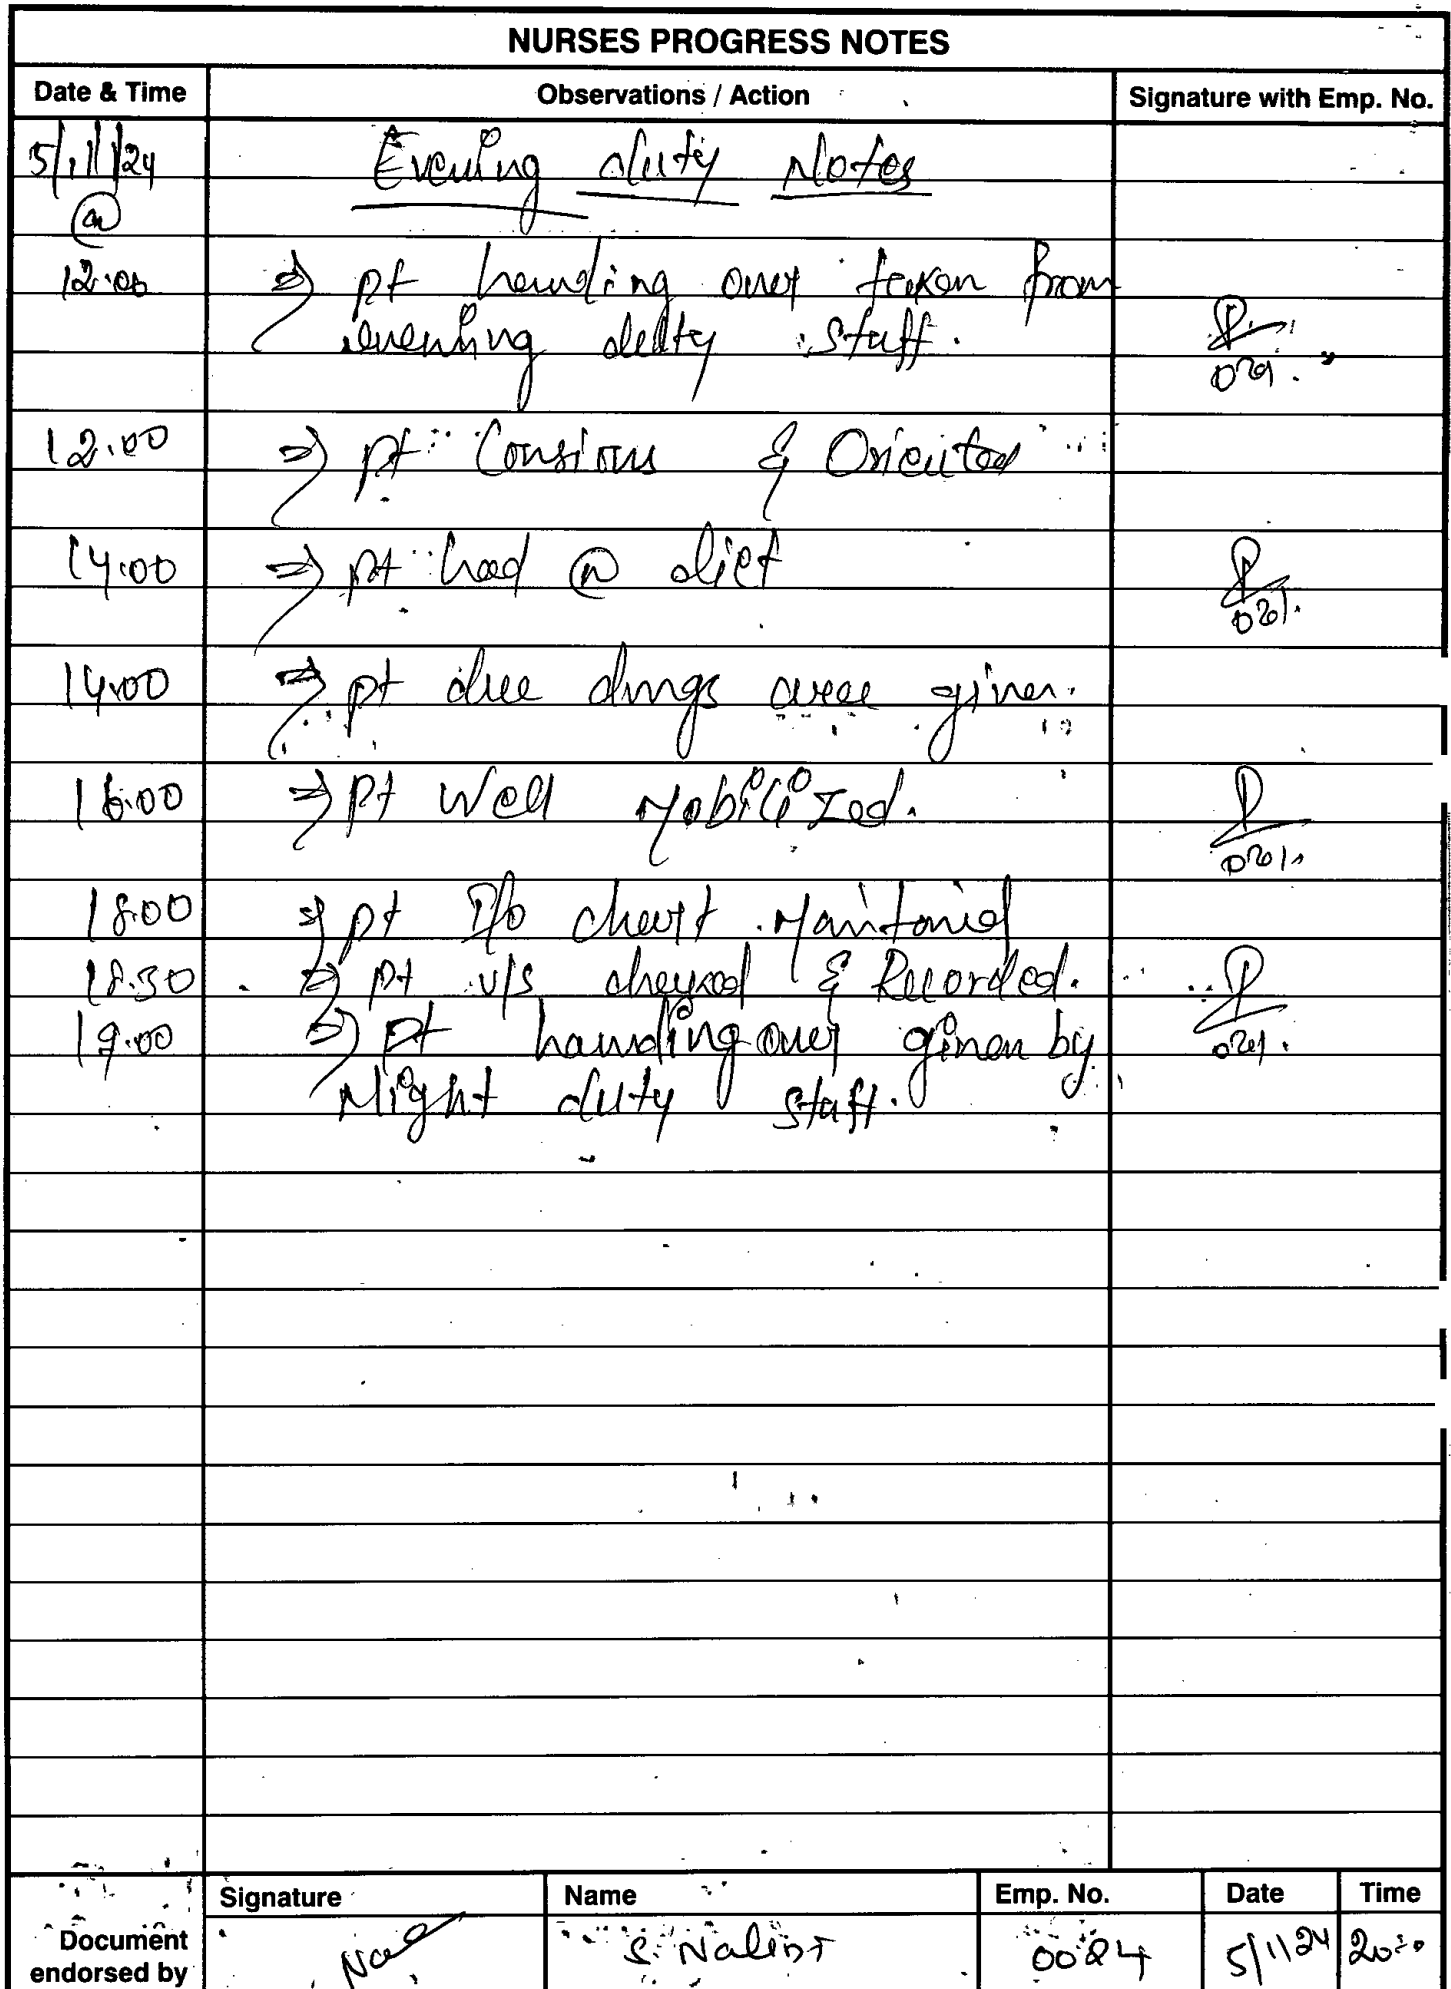 NURSES PROGRESS NOTES
Date & Time Observations / Action Signature with Emp. No.
5/11/24 Evening duty Notes
@
12:00 => pt handing over taken from
evening duty staff.
021.
12.00 => pt Consious & Oriented
14:00 => pt had @ diet
021.
14:00 => pt due drugs were given.
16:00 => pt Well Mobilized.
021.
18:00 => pt I/o chart
18:30 => pt v/s & Recorded.
19:00 => pt handing over given by
021.
Night duty staff.
Signature Name Emp. No. Date Time
Document
endorsed by S. Nalini 0024 5/11/24